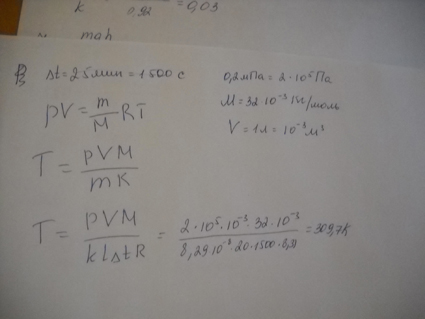 k 0,92 = 0,03
m a h
B Δt = 25 мин = 1500 с 0,2 мПа = 2 · 10⁵ Па
pV = m/M RT M = 32 · 10⁻³ кг/моль
V = 1 л = 10⁻³ м³
T = pVM / mR
T = pVM / kIΔtR = 2 · 10⁵ · 10⁻³ · 32 · 10⁻³ / 8,29 · 10⁻⁸ · 20 · 1500 · 8,31 = 309,7 К